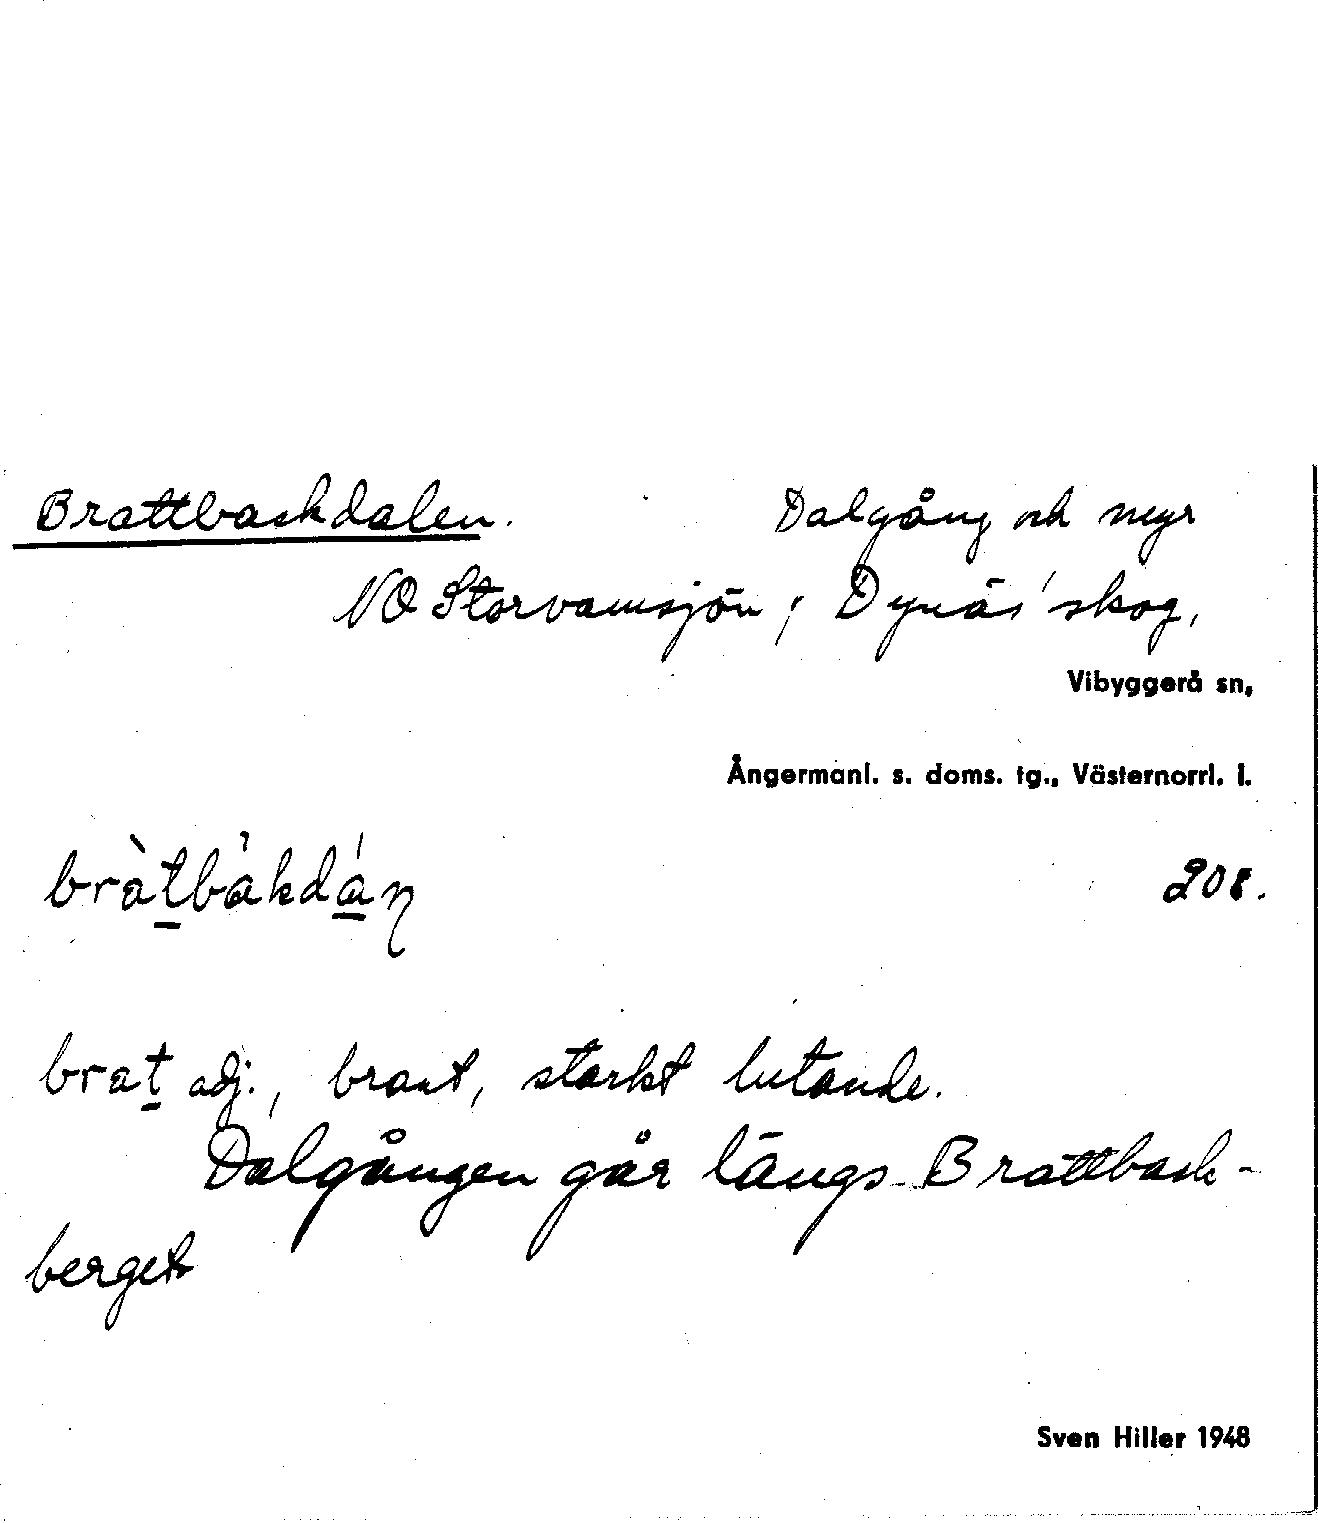 Brattbackdalen. Dalgång och myr
NO Storvamsjön; Dynäs' skog,
Vibyggerå sn,
Ångermanl. s. doms. tg., Västernorrl. l.
bràt̲bàkdá̲ɳ 208.
brat̲ adj., brant, starkt lutande.
Dalgången går längs Brattback-
berget
Sven Hiller 1948